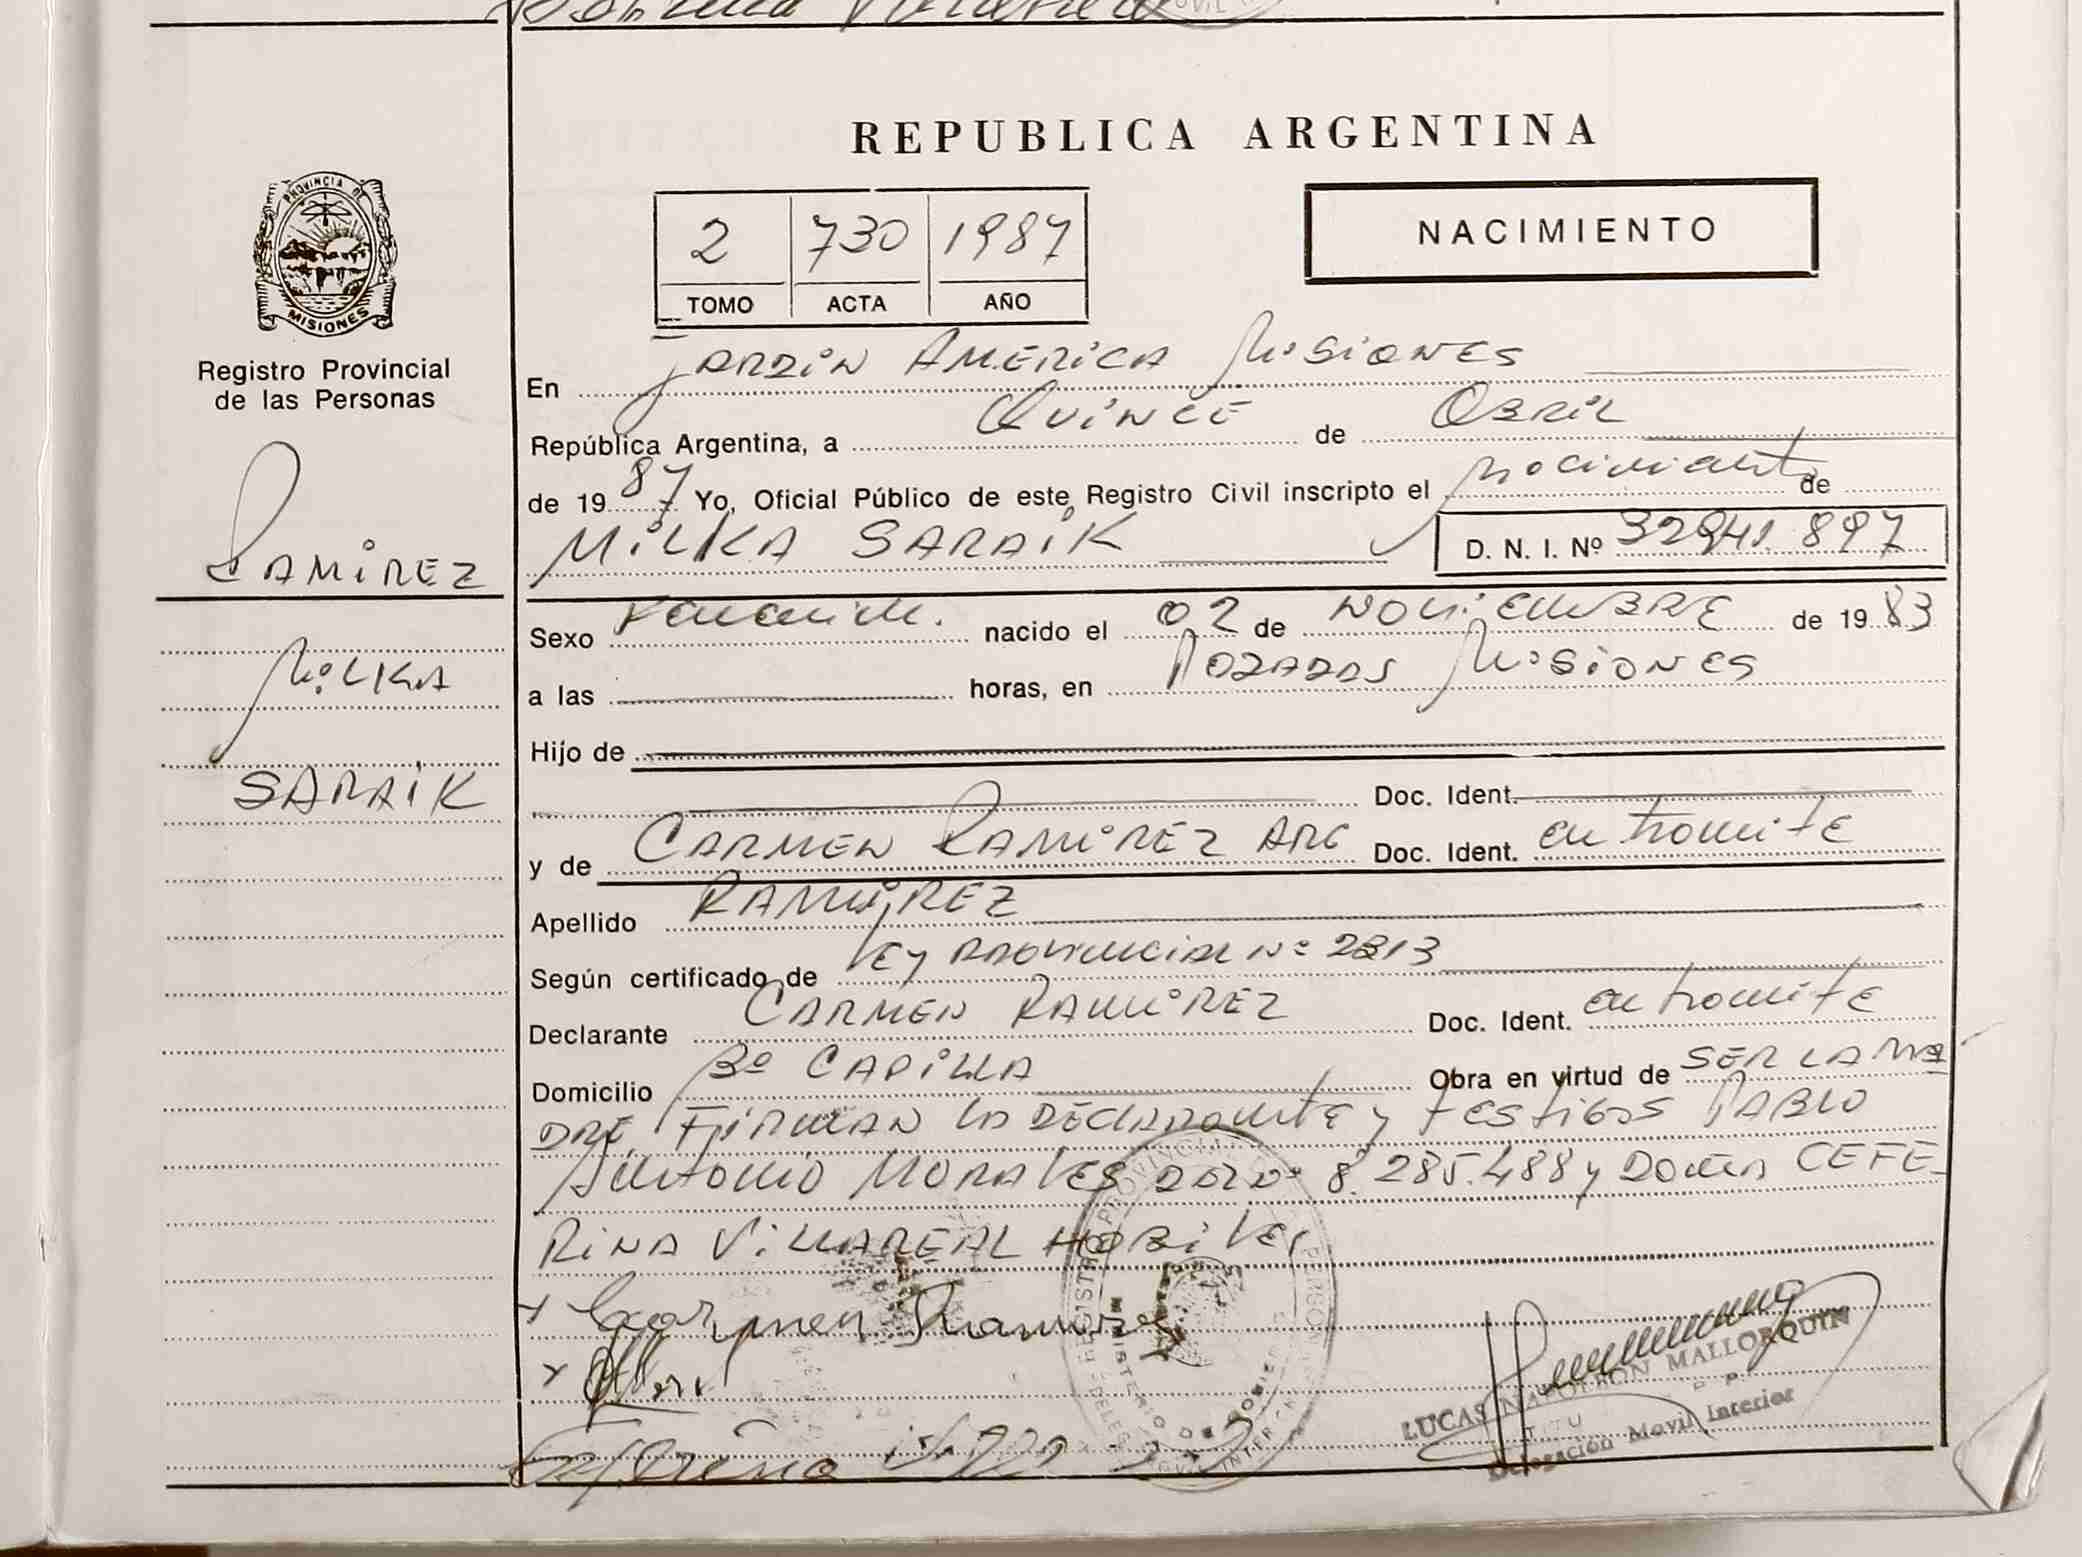 REPUBLICA ARGENTINA
PROVINCIA DE
MISIONES
Registro Provincial
de las Personas
RAMIREZ
MILKA
SARAIK
2 730 1987
TOMO ACTA AÑO
NACIMIENTO
En JARDIN AMERICA MISIONES
República Argentina, a QUINCE de ABRIL
de 1987 Yo, Oficial Público de este Registro Civil inscripto el nacimiento de
MILKA SARAIK D. N. I. Nº 32941.897
Sexo Femenin. nacido el 02 de NOVIEMBRE de 1983
a las horas, en POSADAS MISIONES
Hijo de
Doc. Ident.
y de CARMEN RAMIREZ ARG Doc. Ident. en tramite
Apellido RAMIREZ
Según certificado de LEY PROVINCIAL Nº 2313
Declarante CARMEN RAMIREZ Doc. Ident. en tramite
Domicilio Bº CAPILLA Obra en virtud de SER LA MA
DRE, FIRMAN LA DECLARANTE y TESTIGOS PABLO
ANTONIO MORALES 8.285.488 y DOÑA CEFE-
RINA VILLAREAL
Carmen Ramirez
LUCAS NAPOLEON MALLORQUIN
Delegación Movil Interior